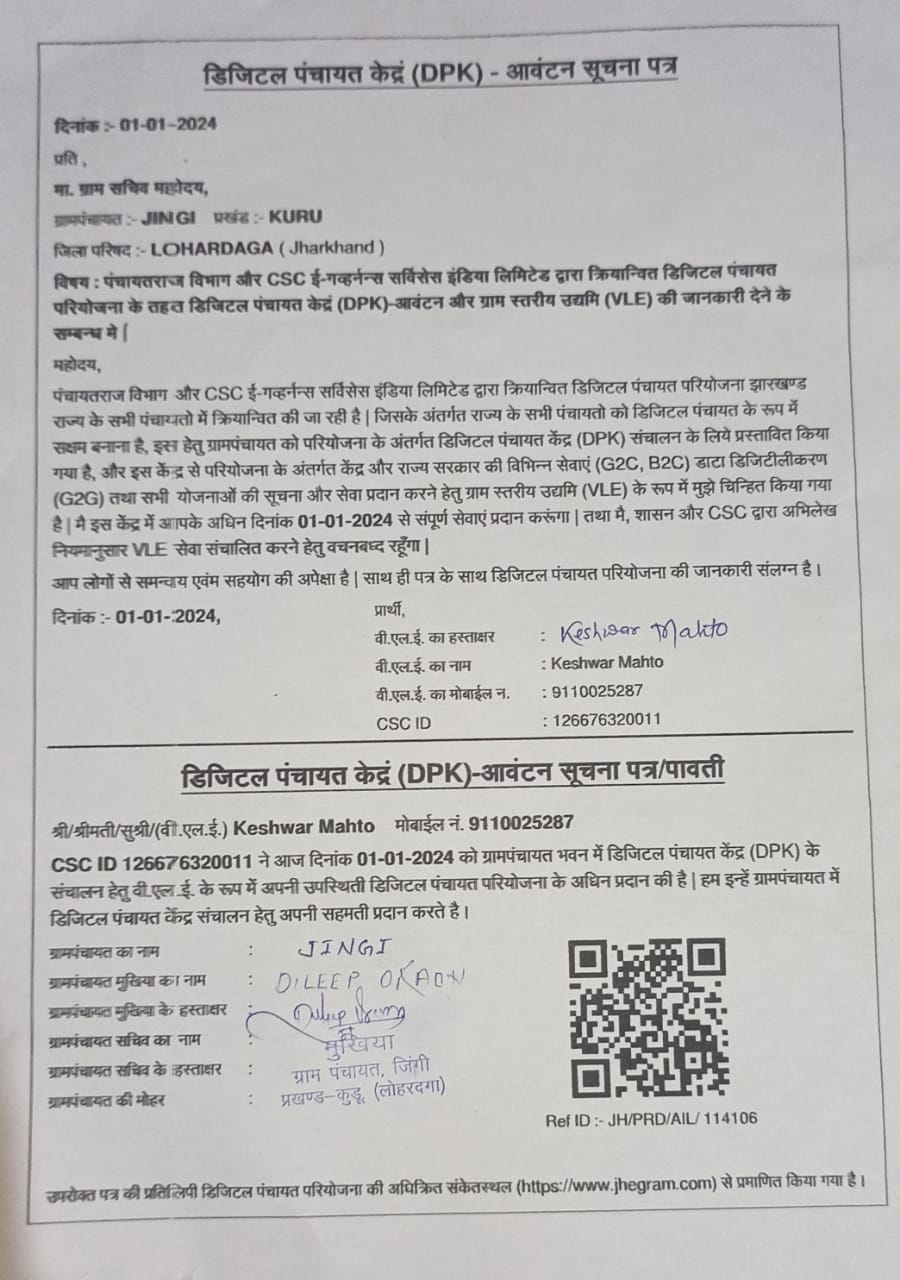 डिजिटल पंचायत केद्रं (DPK) - आवंटन सूचना पत्र
दिनांक :- 01-01-2024
प्रति ,
मा. ग्राम सचिव महोदय,
ग्रामपंचायत :- JINGI प्रखंड :- KURU
जिला परिषद :- LOHARDAGA ( Jharkhand )
विषय : पंचायतराज विभाग और CSC ई-गव्हर्नन्स सर्विसेस इंडिया लिमिटेड द्वारा क्रियान्वित डिजिटल पंचायत
परियोजना के तहत डिजिटल पंचायत केद्रं (DPK)-आवंटन और ग्राम स्तरीय उद्यमि (VLE) की जानकारी देने के
सम्बन्ध मे |
महोदय,
पंचायतराज विभाग और CSC ई-गव्हर्नन्स सर्विसेस इंडिया लिमिटेड द्वारा क्रियान्वित डिजिटल पंचायत परियोजना झारखण्ड
राज्य के सभी पंचायतो में क्रियान्वित की जा रही है | जिसके अंतर्गत राज्य के सभी पंचायतो को डिजिटल पंचायत के रूप में
सक्षम बनाना है, इस हेतु ग्रामपंचायत को परियोजना के अंतर्गत डिजिटल पंचायत केंद्र (DPK) संचालन के लिये प्रस्तावित किया
गया है, और इस केंद्र से परियोजना के अंतर्गत केंद्र और राज्य सरकार की विभिन्न सेवाएं (G2C, B2C) डाटा डिजिटीलीकरण
(G2G) तथा सभी योजनाओं की सूचना और सेवा प्रदान करने हेतु ग्राम स्तरीय उद्यमि (VLE) के रूप में मुझे चिन्हित किया गया
है | मै इस केंद्र में आपके अधिन दिनांक 01-01-2024 से संपूर्ण सेवाएं प्रदान करूंगा | तथा मै, शासन और CSC द्वारा अभिलेख
नियमानुसार VLE सेवा संचालित करने हेतु वचनबध्द रहूँगा |
आप लोगों से समन्वाय एवंम सहयोग की अपेक्षा है | साथ ही पत्र के साथ डिजिटल पंचायत परियोजना की जानकारी संलग्न है ।
दिनांक :- 01-01-2024,
प्रार्थी,
वी.एल.ई. का हस्ताक्षर : Keshwar Mahto
वी.एल.ई. का नाम : Keshwar Mahto
वी.एल.ई. का मोबाईल न. : 9110025287
CSC ID : 126676320011
डिजिटल पंचायत केद्रं (DPK)-आवंटन सूचना पत्र/पावती
श्री/श्रीमती/सुश्री/(वी.एल.ई.) Keshwar Mahto मोबाईल नं. 9110025287
CSC ID 126676320011 ने आज दिनांक 01-01-2024 को ग्रामपंचायत भवन में डिजिटल पंचायत केंद्र (DPK) के
संचालन हेतु वी.एल.ई. के रूप में अपनी उपस्थिती डिजिटल पंचायत परियोजना के अधिन प्रदान की है | हम इन्हें ग्रामपंचायत में
डिजिटल पंचायत केंद्र संचालन हेतु अपनी सहमती प्रदान करते है ।
ग्रामपंचायत का नाम : JINGI
ग्रामपंचायत मुखिया का नाम : DILEEP ORAON
ग्रामपंचायत मुखिया के हस्ताक्षर :
ग्रामपंचायत सचिव का नाम : मुखिया
ग्रामपंचायत सचिव के हस्ताक्षर : ग्राम पंचायत, जिंगी
ग्रामपंचायत की मोहर : प्रखण्ड-कुडू (लोहरदगा)
Ref ID :- JH/PRD/AIL/ 114106
उपरोक्त पत्र की प्रतिलिपी डिजिटल पंचायत परियोजना की अधिक्रित संकेतस्थल (https://www.jhegram.com) से प्रमाणित किया गया है ।